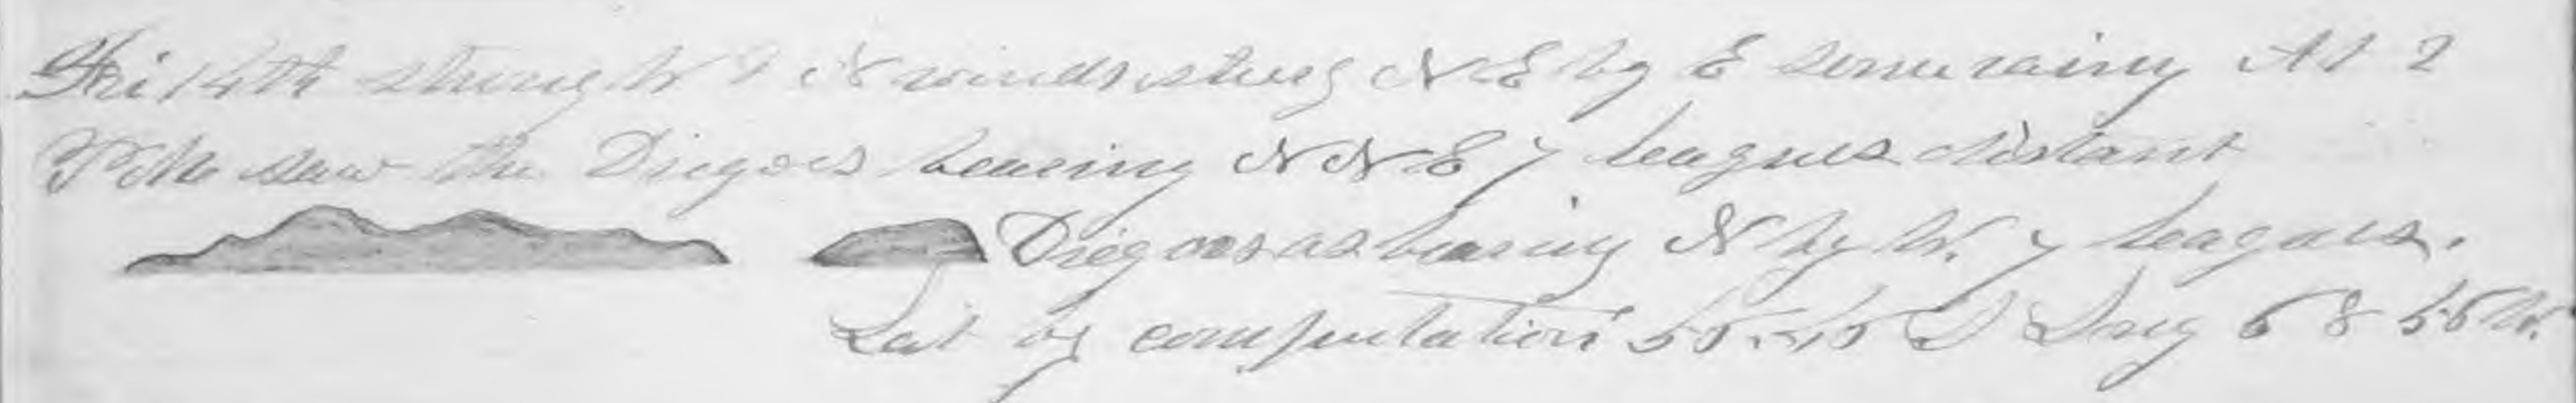 Fri 14th strong W & N winds steerg N E by E some rainy At 2
P M saw the Diegoes bearing N N E 7 leagues distant
Diegoes as bearing N by W. 7 leagues.
Lat by computation S Long 68 56 W.